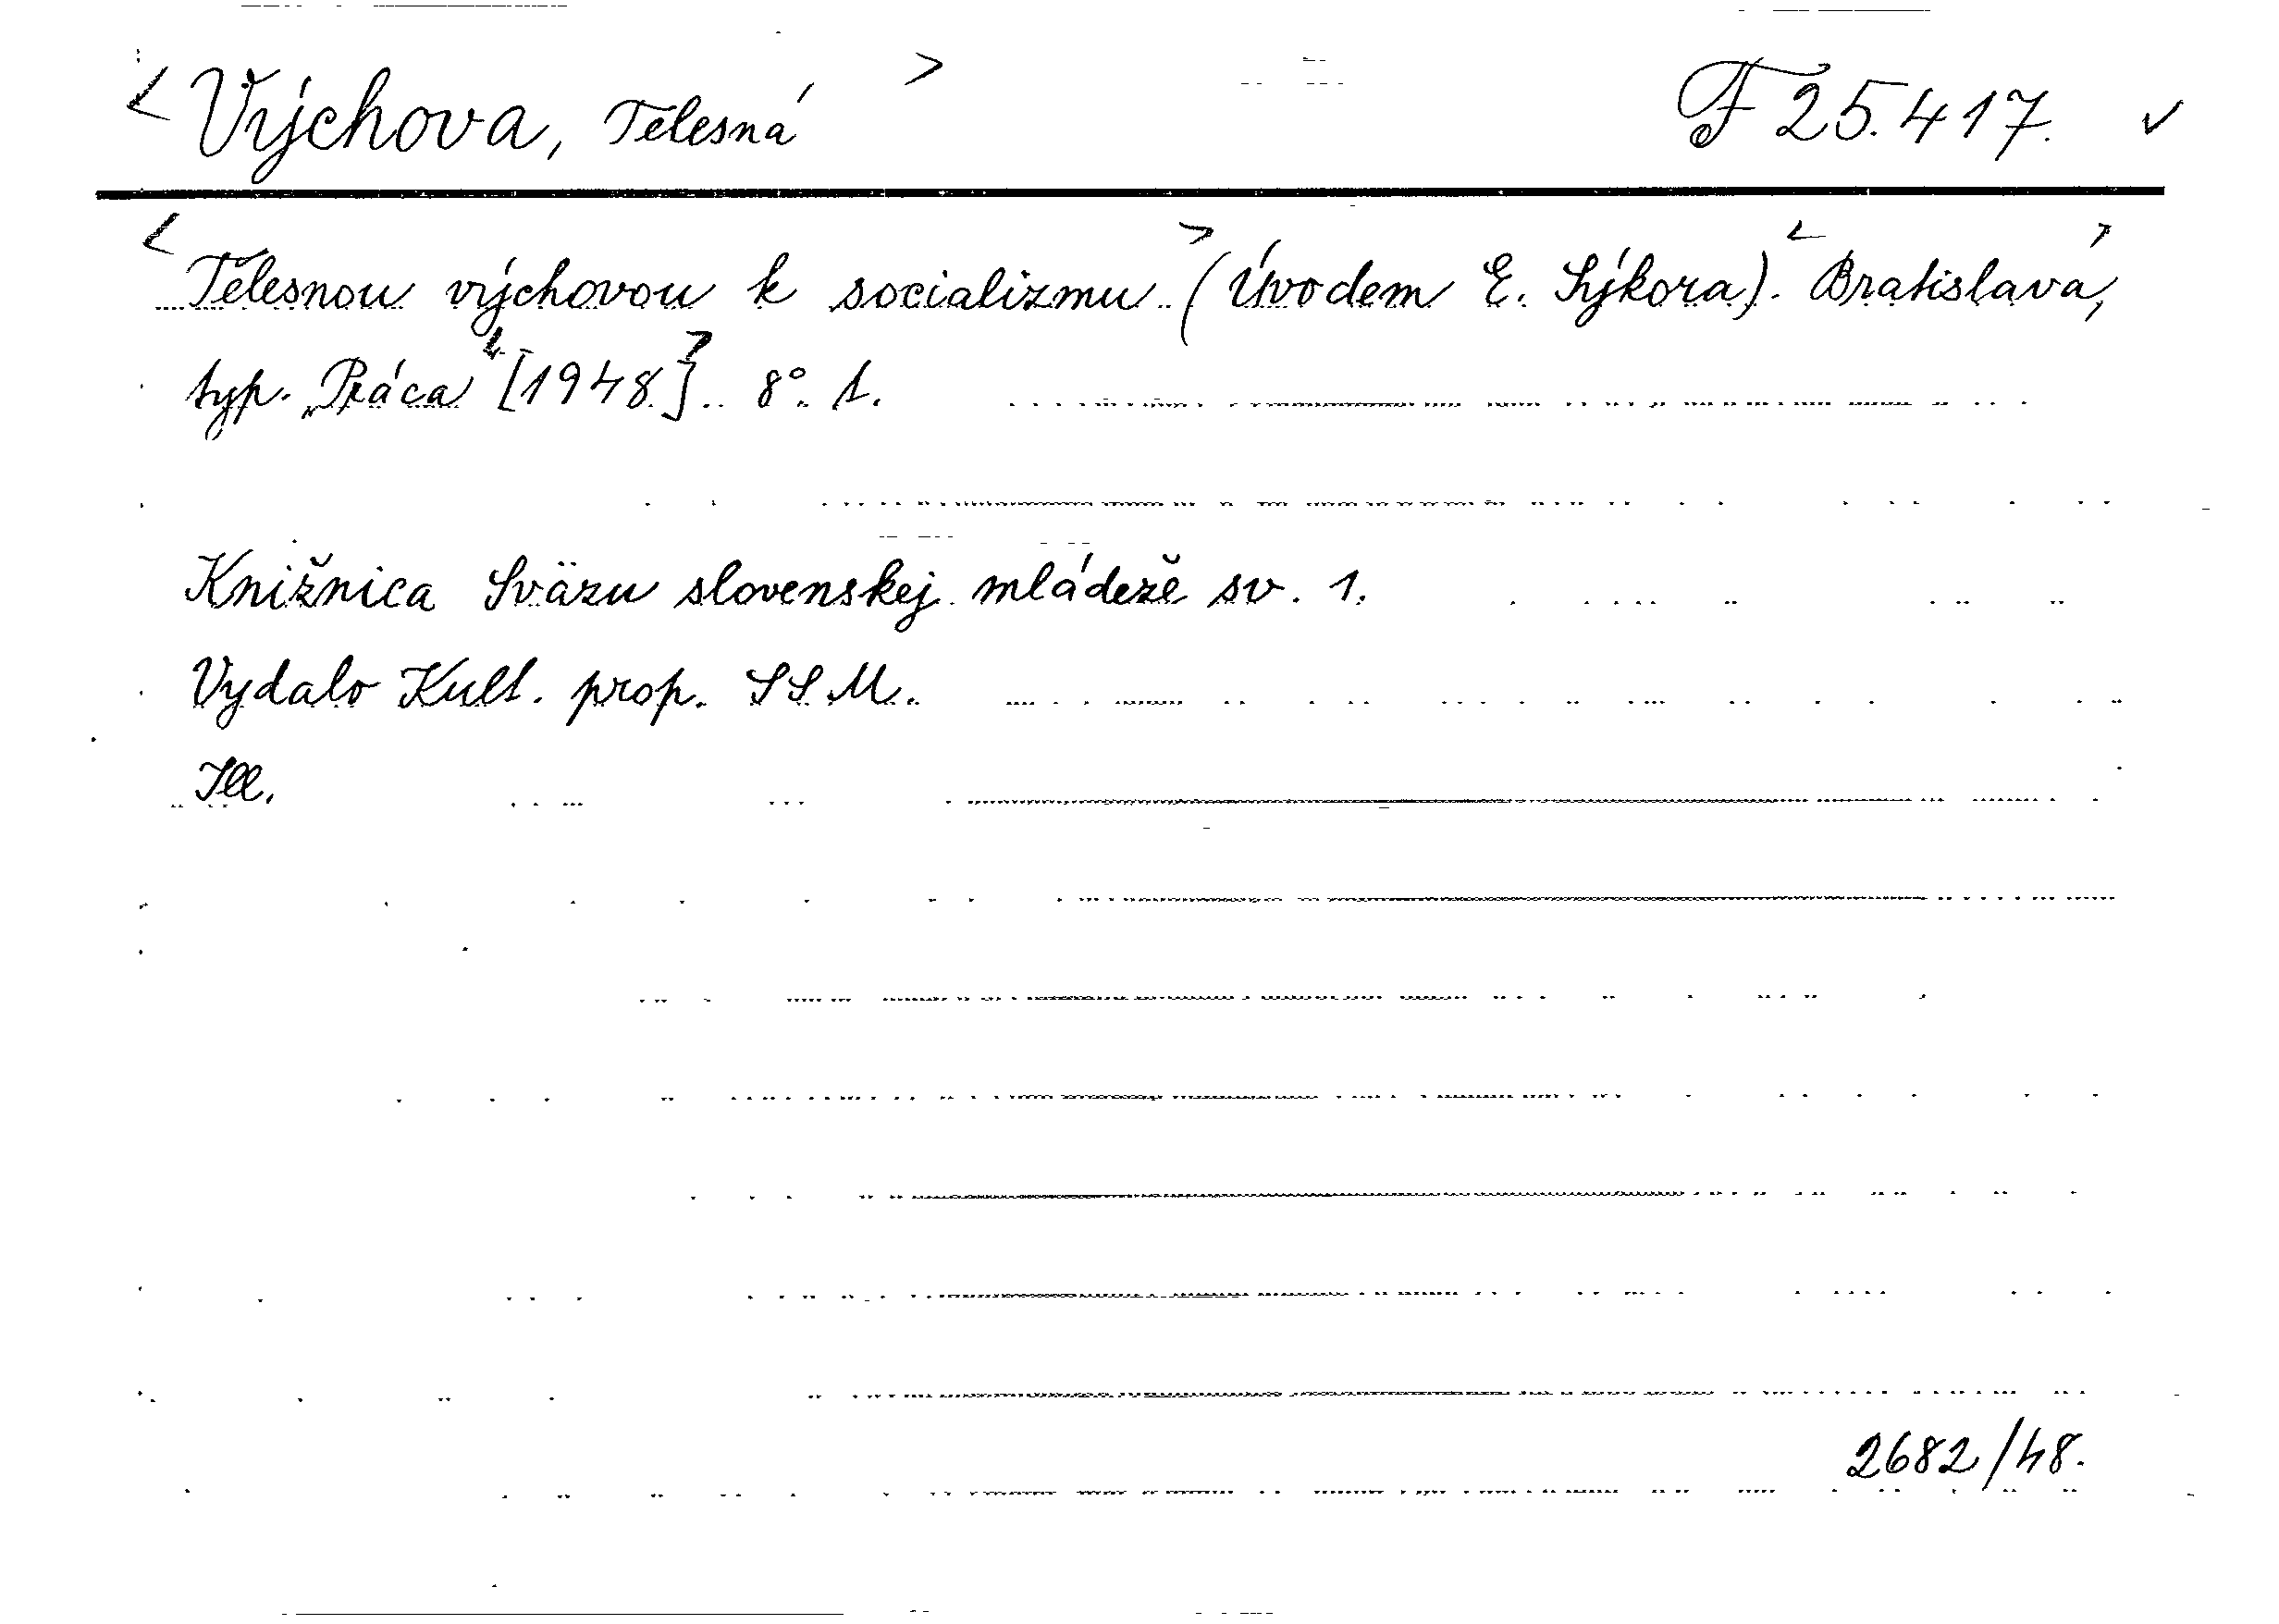 < Výchova, Telesná > F 25.417. ✓
< Telesnou výchovou k socializmu > (Úvodem E. Sýkora). < Bratislava, >
typ. „Práca“ < [1948] >. 8°. 1.
Knižnica Sväzu slovenskej mládeže sv. 1.
Vydalo Kult. prop. SSM.
Ill.
2682/48.